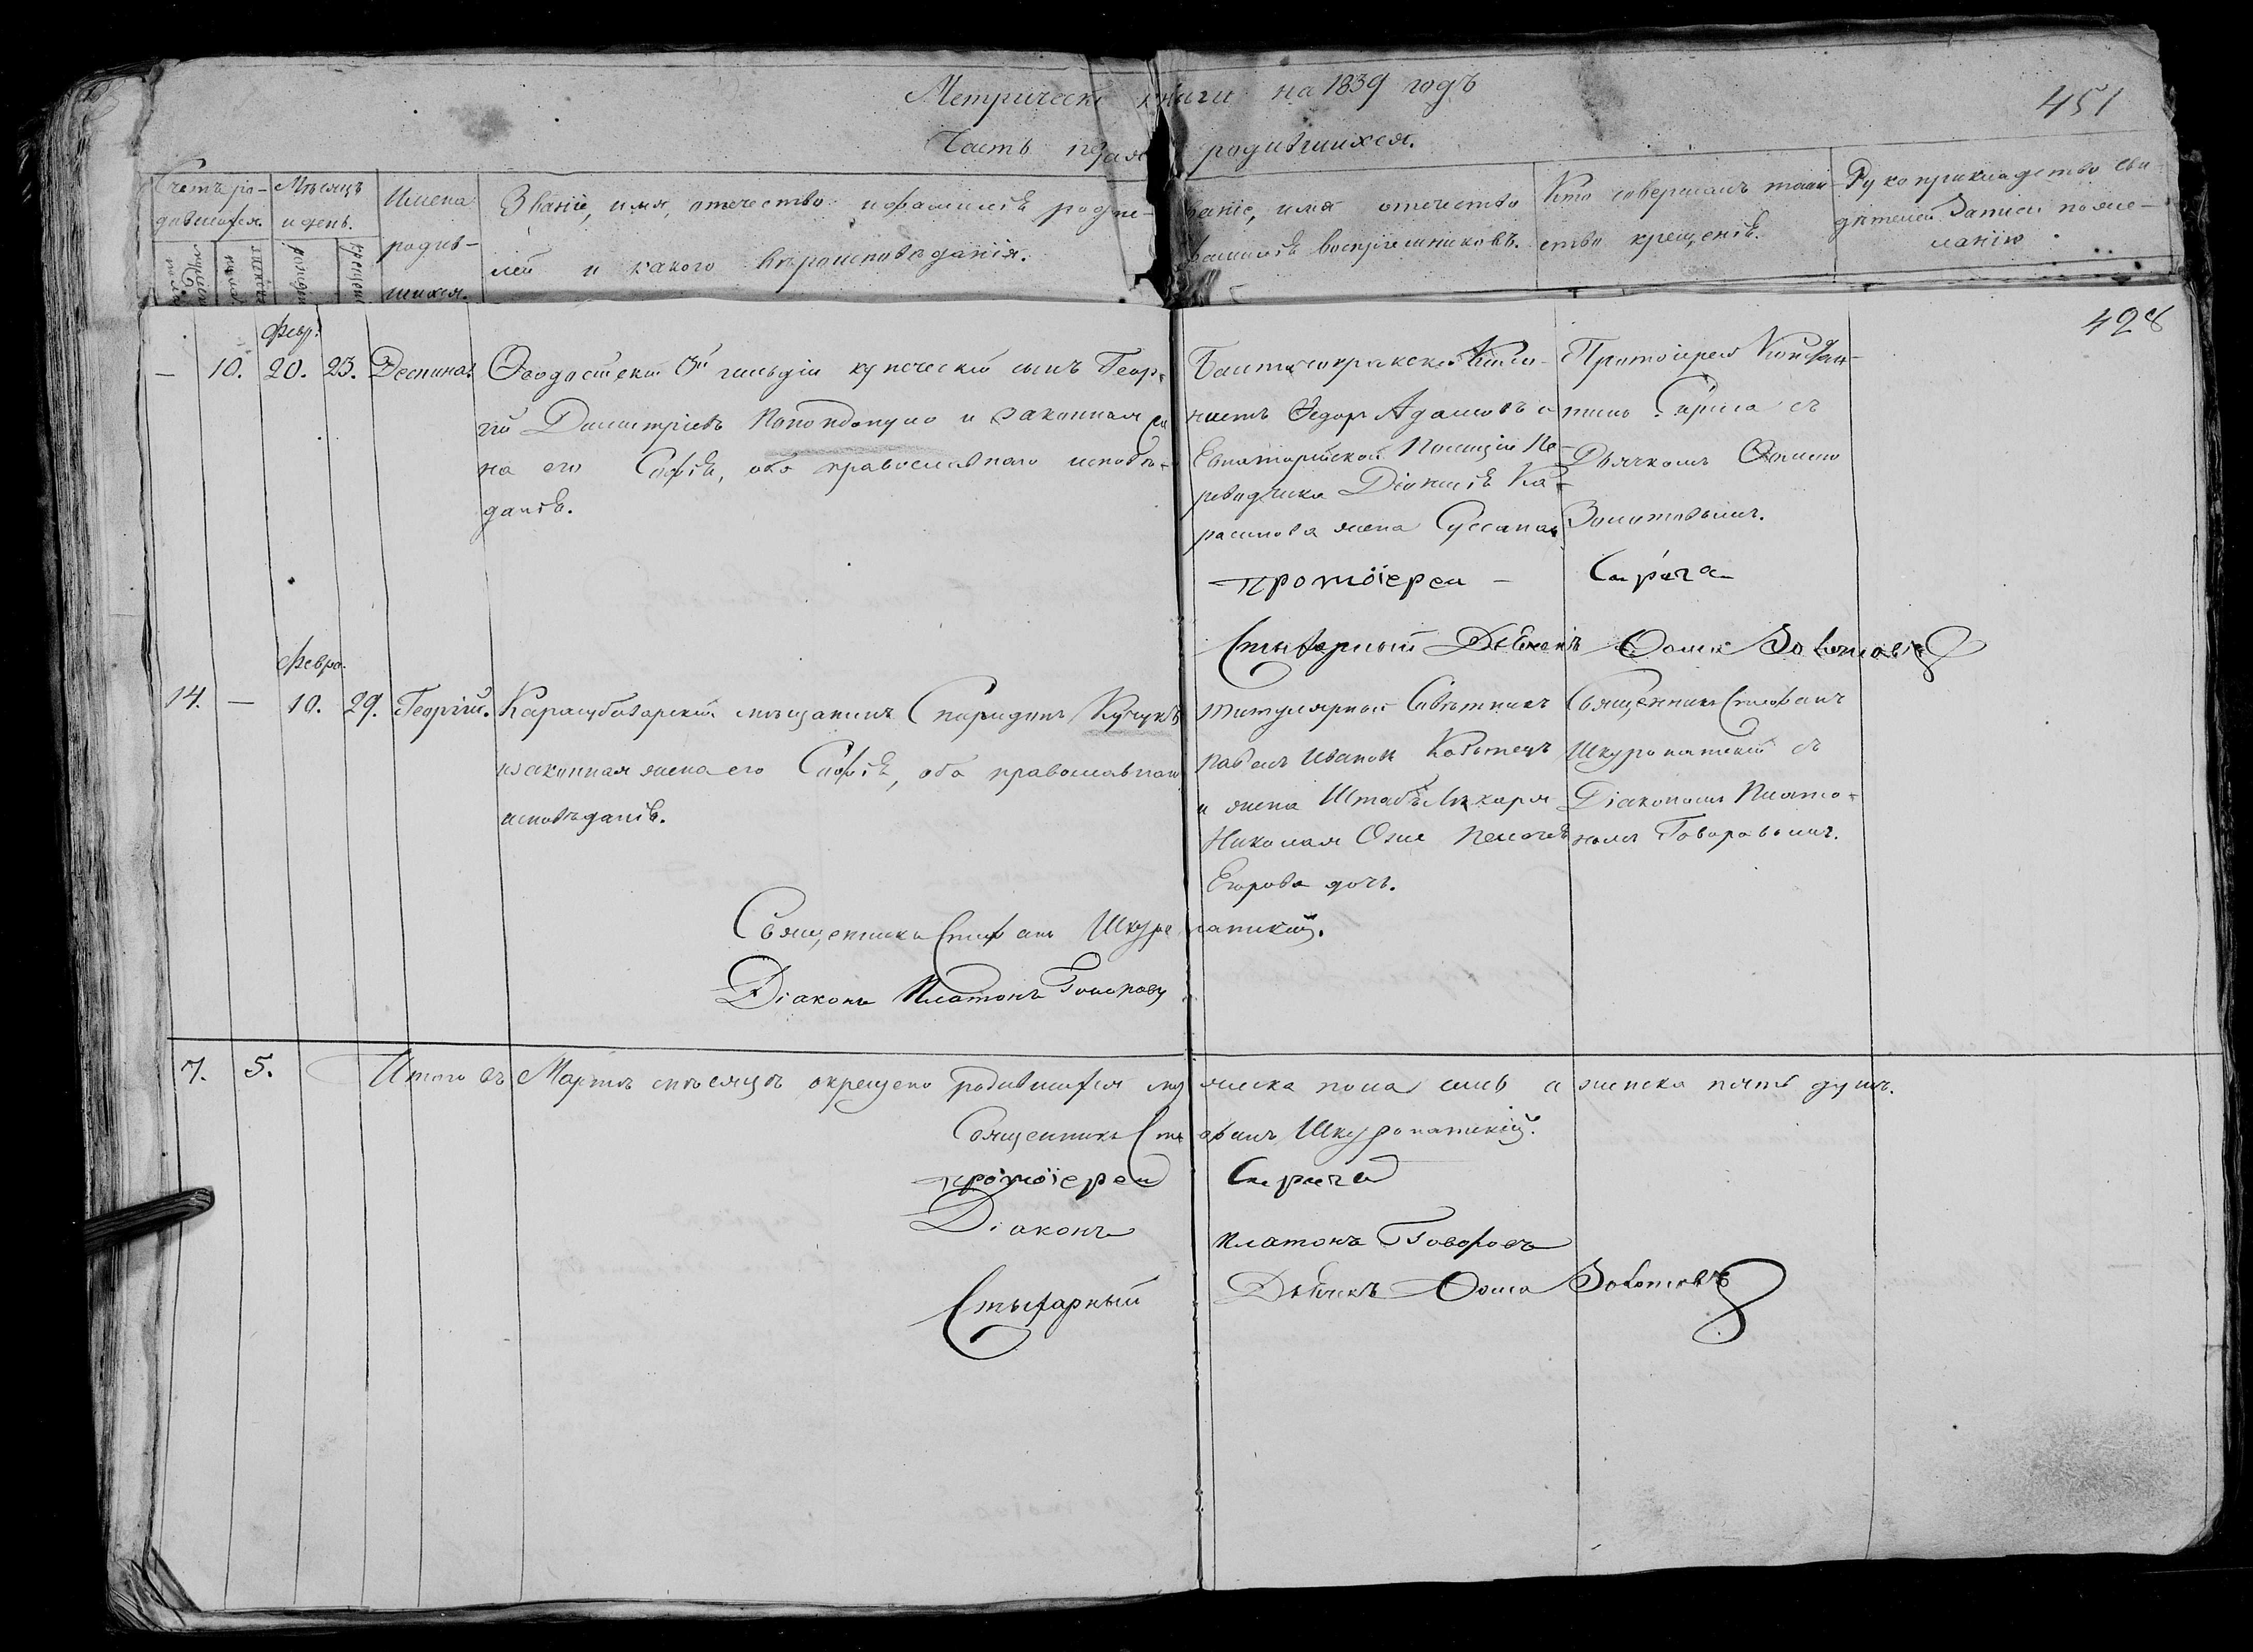 Метрическ книги на 1839 годъ
451
Часть п рая родившихся.
Счетъ ро-
дившихся.
Мѣсяцъ
и день.
Имена
родив-
шихся.
Званіе, имя, отечество и фамилія родите-
лей и какого вѣроисповѣданія.
Званіе, имя отечество
фамилія воспріемниковъ.
Кто совершалъ таин-
ство крещенія.
Рукоприкладство сви-
дѣтелей записи по же-
ланію
428
Февр:
— 10. 20. 23. Деспина.
Ѳеодосійскій 3й гильдіи купеческій сынъ Геор-
гій Димитріевъ Попондопуло и законная же
на его Софія, оба православнаго исповѣ-
данія.
Федоръ Адамовъ и
Евпаторійской Полиціи Пе-
реводчика Діонисія Ка-
расинова жена Суссана
Протоіерей Констан-
тинъ Списа съ
Дьячкомъ Ѳомою
Золотовымъ.
протоіереи —
Стыхарный Дьячекъ Ѳома Золотовъ
Февра.
14. — 10. 29. Георгій.
Карасубазарскій мѣщанинъ Спиридонъ Кучукъ
и законная жена его Софія, оба православнаго
исповѣданія.
титулярный Совѣтникъ
Павелъ Ивановъ
и жена Штабъ Лѣкаря
Николая
Егорова дочь.
Священникъ Стефанъ
Шкуропатскій съ
Діакономъ Плато-
номъ Говоровымъ.
Священникъ Стефанъ Шкуропатскій.
Діаконъ Платонъ Говоровъ
7. 5. Итого въ Мартѣ мѣсяцѣ окрещено родившихся мужеска пола семь а женска пять душъ.
Священникъ Стефанъ Шкуропатскій.
протоіереи
Діаконъ Платонъ Говоровъ
Стыхарный Дьячекъ Ѳома Золотовъ